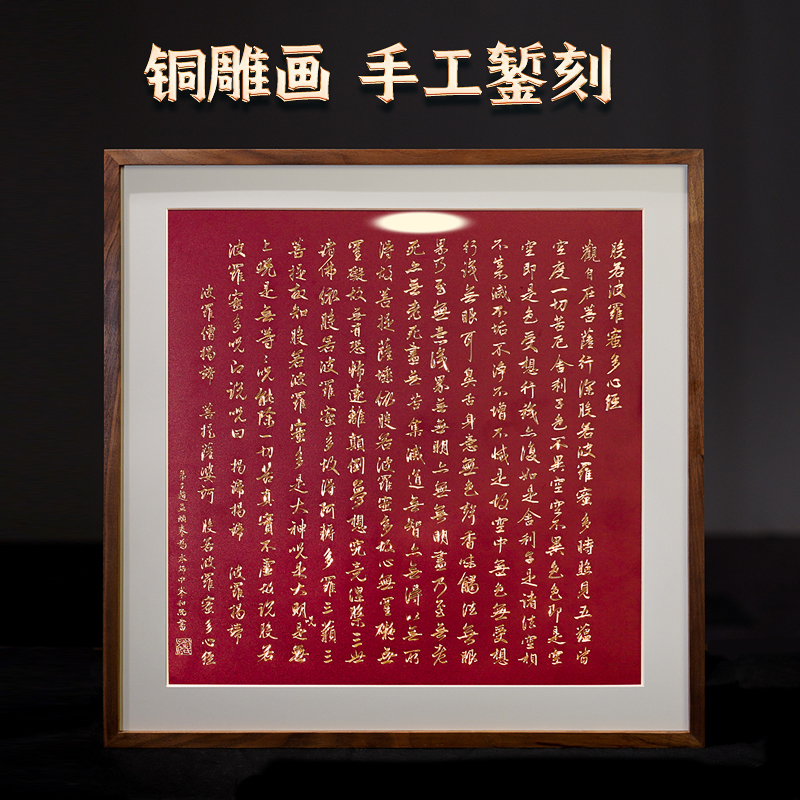 铜雕画 手工錾刻
般若波羅蜜多心經
觀自在菩薩行深般若波羅蜜多時照見五蘊皆
空度一切苦厄舍利子色不異空空不異色色即是空
空即是色受想行識亦復如是舍利子是諸法空相
不生不滅不垢不淨不增不減是故空中無色無受想
行識無眼耳鼻舌身意無色聲香味觸法無眼
界乃至無意識界無無明亦無無明盡乃至無老
死亦無老死盡無苦集滅道無智亦無得以無所
得故菩提薩埵依般若波羅蜜多故心無罣礙無
罣礙故無有恐怖遠離顛倒夢想究竟涅槃三世
諸佛依般若波羅蜜多故得阿耨多羅三藐三
菩提故知般若波羅蜜多是大神咒是大明咒是無
上咒是無等等咒能除一切苦真實不虛故說般若
波羅蜜多咒即說咒曰 揭諦揭諦 波羅揭諦
波羅僧揭諦 菩提薩婆訶 般若波羅蜜多心經
弟子趙孟頫奉為本師中峯和尚書